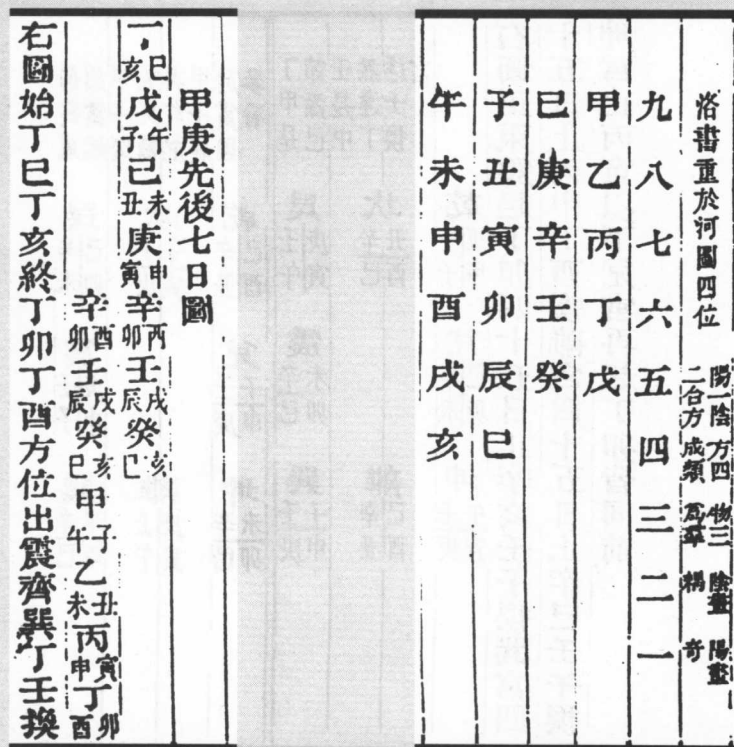 洛書重於河圖四位 陽一陰二合方 方四成類 物三爲羣 陰盡耦 陽盡奇
九八七六五四三二一
甲乙丙丁戊
己庚辛壬癸
子丑寅卯辰巳
午未申酉戌亥
甲庚先後七日圖
巳亥戊午子己未丑庚申寅辛丙卯壬戌辰癸亥巳
辛酉卯壬戌辰癸亥巳甲子午乙丑未丙寅申丁卯酉
右圖始丁巳丁亥終丁卯丁酉方位出震齊巽丁壬換